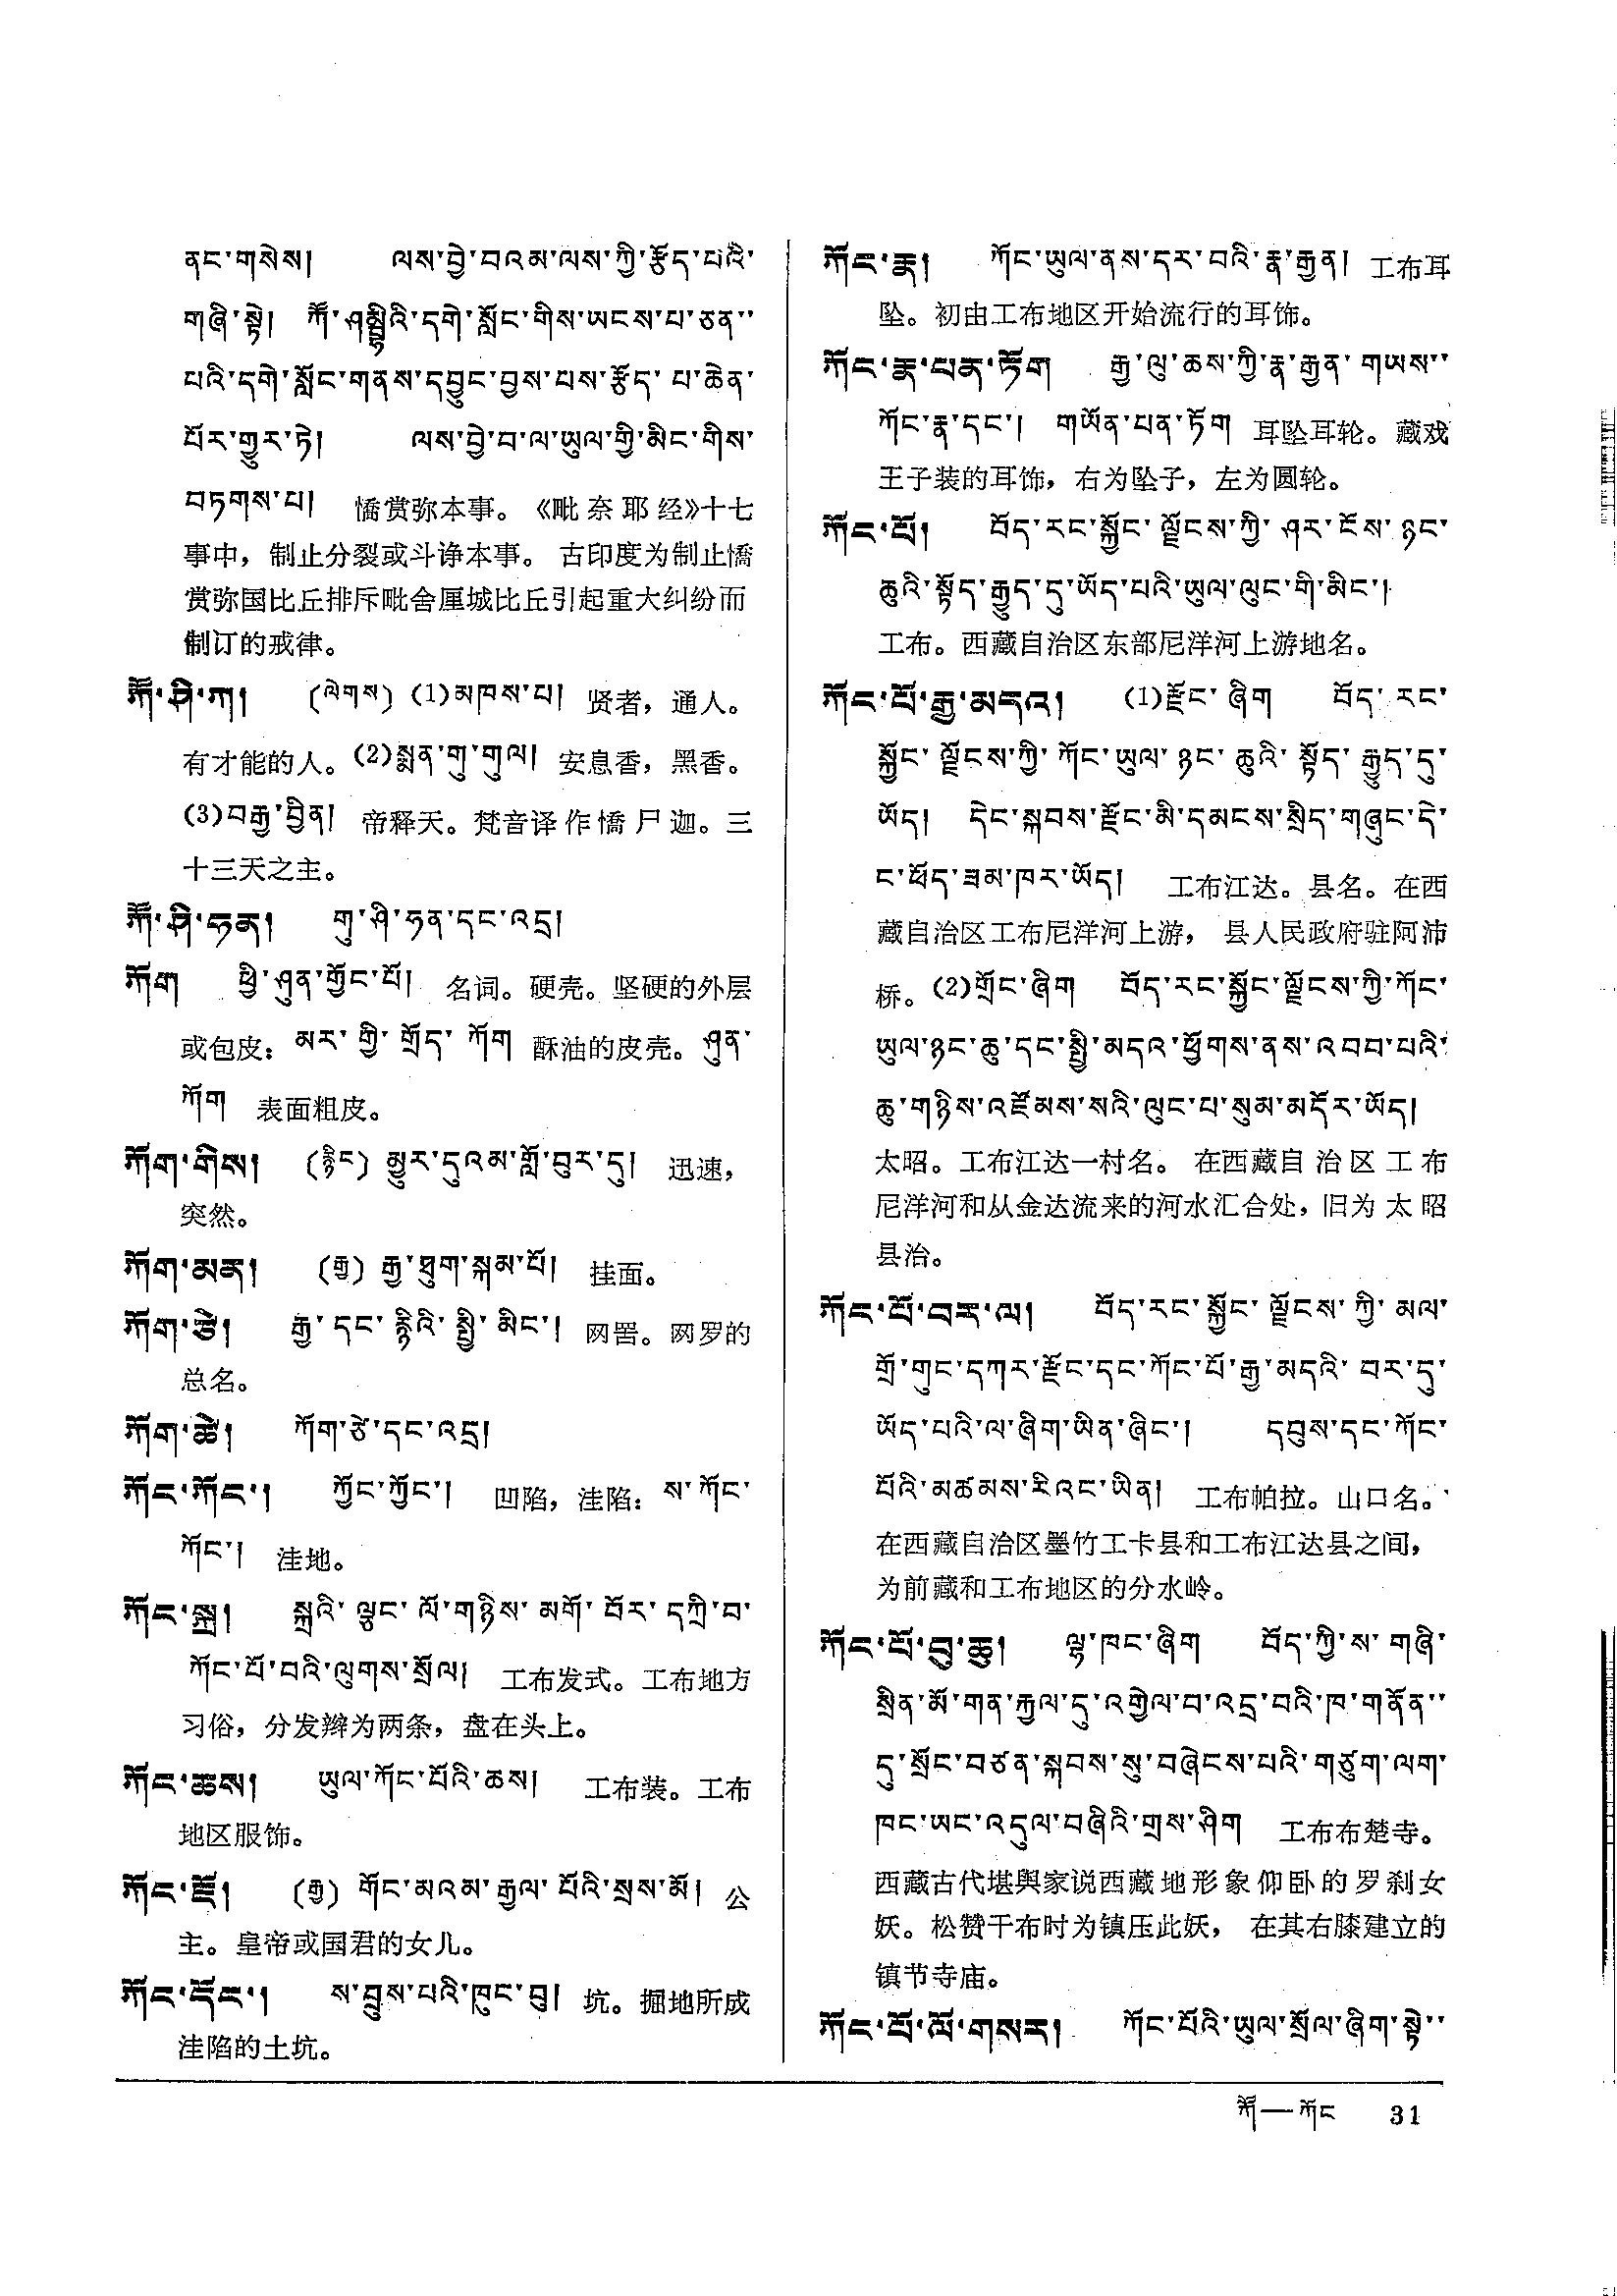 ནང་གསེས། ལས་བྱེ་བའམ་ལས་ཀྱི་རྩོད་པའི་
གཞི་སྟེ། ཀཽ་ཤམྦྷིའི་དགེ་སློང་གིས་ཡངས་པ་ཅན་་
པའི་དགེ་སློང་གནས་དབྱུང་བྱས་པས་རྩོད་པ་ཆེན་
པོར་གྱུར་ཏེ། ལས་བྱེ་བ་ལ་ཡུལ་གྱི་མིང་གིས་
བཏགས་པ། 憍赏弥本事。《毗奈耶经》十七
事中，制止分裂或斗诤本事。古印度为制止憍
赏弥国比丘排斥毗舍厘城比丘引起重大纠纷而
制订的戒律。
ཀཽ་ཤི་ཀ། (ལེགས) (1)མཁས་པ། 贤者，通人。
有才能的人。(2)སྨན་གུ་གུལ། 安息香，黑香。
(3)བརྒྱ་བྱིན། 帝释天。梵音译作憍尸迦。三
十三天之主。
ཀཽ་ཤི་ཧན། གུ་ཤི་ཧན་དང་འདྲ།
ཀོག ཕྱི་ཤུན་གྱོང་པོ། 名词。硬壳。坚硬的外层
或包皮：མར་གྱི་གྲོད་ཀོག 酥油的皮壳。ཤུན་
ཀོག 表面粗皮。
ཀོག་གིས། (རྙིང) མྱུར་དུའམ་གློ་བུར་དུ། 迅速，
突然。
ཀོག་མན། (རྒྱ) རྒྱ་ཐུག་སྐམ་པོ། 挂面。
ཀོག་ཙེ། རྒྱ་དང་རྙིའི་སྤྱི་མིང་། 网罟。网罗的
总名。
ཀོག་ཚེ། ཀོག་ཙེ་དང་འདྲ།
ཀོང་ཀོང་། ཀྱོང་ཀྱོང་། 凹陷，洼陷：ས་ཀོང་
ཀོང་། 洼地。
ཀོང་སྐྲ། སྐྲའི་ལྕང་ལོ་གཉིས་མགོ་བོར་དཀྲི་བ་
ཀོང་པོ་བའི་ལུགས་སྲོལ། 工布发式。工布地方
习俗，分发辫为两条，盘在头上。
ཀོང་ཆས། ཡུལ་ཀོང་པོའི་ཆས། 工布装。工布
地区服饰。
ཀོང་ཇོ། (རྒྱ) གོང་མའམ་རྒྱལ་པོའི་སྲས་མོ། 公
主。皇帝或国君的女儿。
ཀོང་དོང་། ས་བྲུས་པའི་ཁུང་བུ། 坑。掘地所成
洼陷的土坑。
ཀོང་རྣ། ཀོང་ཡུལ་ནས་དར་བའི་རྣ་རྒྱན། 工布耳
坠。初由工布地区开始流行的耳饰。
ཀོང་རྣ་པན་ཏོག རྒྱ་ལུ་ཆས་ཀྱི་རྣ་རྒྱན་གཡས་་
ཀོང་རྣ་དང་། གཡོན་པན་ཏོག 耳坠耳轮。藏戏
王子装的耳饰，右为坠子，左为圆轮。
ཀོང་པོ། བོད་རང་སྐྱོང་ལྗོངས་ཀྱི་ཤར་ངོས་ཉང་
ཆུའི་སྟོད་རྒྱུད་དུ་ཡོད་པའི་ཡུལ་ལུང་གི་མིང་།
工布。西藏自治区东部尼洋河上游地名。
ཀོང་པོ་རྒྱ་མདའ། (1)རྫོང་ཞིག བོད་རང་
སྐྱོང་ལྗོངས་ཀྱི་ཀོང་ཡུལ་ཉང་ཆུའི་སྟོད་རྒྱུད་དུ་
ཡོད། དེང་སྐབས་རྫོང་མི་དམངས་སྲིད་གཞུང་དེ་
ང་ཕོད་ཟམ་ཁར་ཡོད། 工布江达。县名。在西
藏自治区工布尼洋河上游，县人民政府驻阿沛
桥。(2)གྲོང་ཞིག བོད་རང་སྐྱོང་ལྗོངས་ཀྱི་ཀོང་
ཡུལ་ཉང་ཆུ་དང་སྤྱི་མདའ་ཕྱོགས་ནས་འབབ་པའི་
ཆུ་གཉིས་འཛོམས་སའི་ལུང་པ་སུམ་མདོར་ཡོད།
太昭。工布江达一村名。在西藏自治区工布
尼洋河和从金达流来的河水汇合处，旧为太昭
县治。
ཀོང་པོ་བར་ལ། བོད་རང་སྐྱོང་ལྗོངས་ཀྱི་མལ་
གྲོ་གུང་དཀར་རྫོང་དང་ཀོང་པོ་རྒྱ་མདའི་བར་དུ་
ཡོད་པའི་ལ་ཞིག་ཡིན་ཞིང་། དབུས་དང་ཀོང་
པོའི་མཚམས་རིའང་ཡིན། 工布帕拉。山口名。
在西藏自治区墨竹工卡县和工布江达县之间，
为前藏和工布地区的分水岭。
ཀོང་པོ་བུ་ཆུ། ལྷ་ཁང་ཞིག བོད་ཀྱི་ས་གཞི་
སྲིན་མོ་གན་རྐྱལ་དུ་འགྱེལ་བ་འདྲ་བའི་ཁ་གནོན་་
དུ་སྲོང་བཙན་སྐབས་སུ་བཞེངས་པའི་གཙུག་ལག་
ཁང་ཡང་འདུལ་བཞིའི་གྲས་ཤིག 工布布楚寺。
西藏古代堪舆家说西藏地形象仰卧的罗刹女
妖。松赞干布时为镇压此妖，在其右膝建立的
镇节寺庙。
ཀོང་པོ་ལོ་གསར། ཀོང་པོའི་ཡུལ་སྲོལ་ཞིག་སྟེ་་
ཀཽ—ཀོང 31